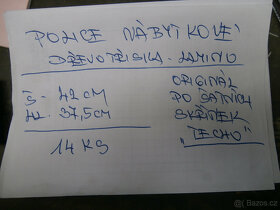 POLICE NÁBYTKOVÉ
DŘEVOTŘÍSKA - LAMINO
Š- 42 CM
HL. 37,5CM
14 KS
ORIGINÁL
PO ŠATNÍCH
SKŘÍNEK
"TECHO"
Bazos.cz